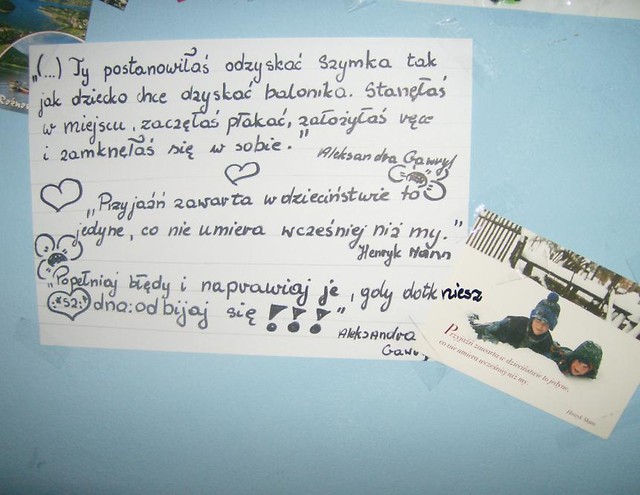 „(...) Ty postanowiłaś odzyskać Szymka tak
jak dziecko chce dzyskać balonika. Stanęłaś
w miejscu, zaczęłaś płakać, założyłaś ręce
i zamknęłaś się w sobie."
Aleksandra Gawryś
„Przyjaźń zawarta w dzieciństwie to
jedyne, co nie umiera wcześniej niż my."
Henryk Mann
„Popełniaj błędy i naprawiaj je, gdy dotkniesz
dna: odbijaj się !!!"
Aleksandra
Gawryś
Przyjaźń zawarta w dzieciństwie to jedyne,
co nie umiera wcześniej niż my.
Henryk Mann